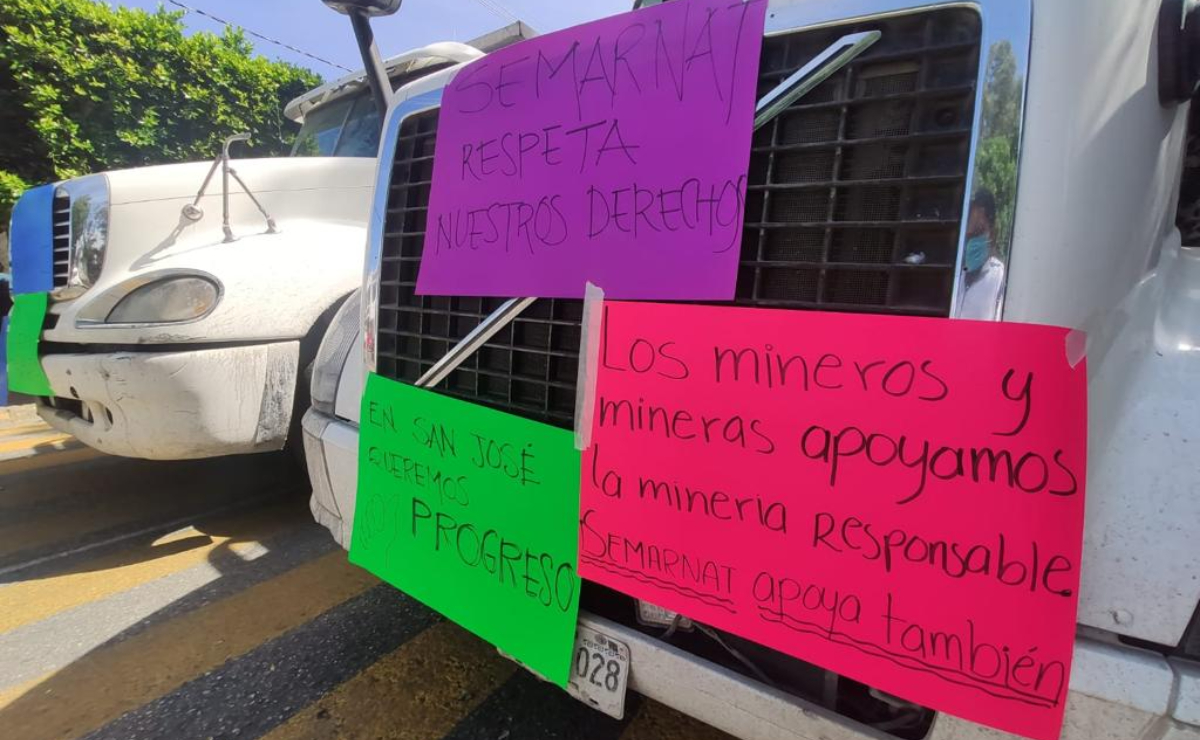 SEMARNAT
RESPETA
NUESTROS DERECHOS
Los mineros y
mineras apoyamos
la mineria Responsable.
SEMARNAT apoya también
EN SAN JOSÉ
QUEREMOS
PROGRESO
028